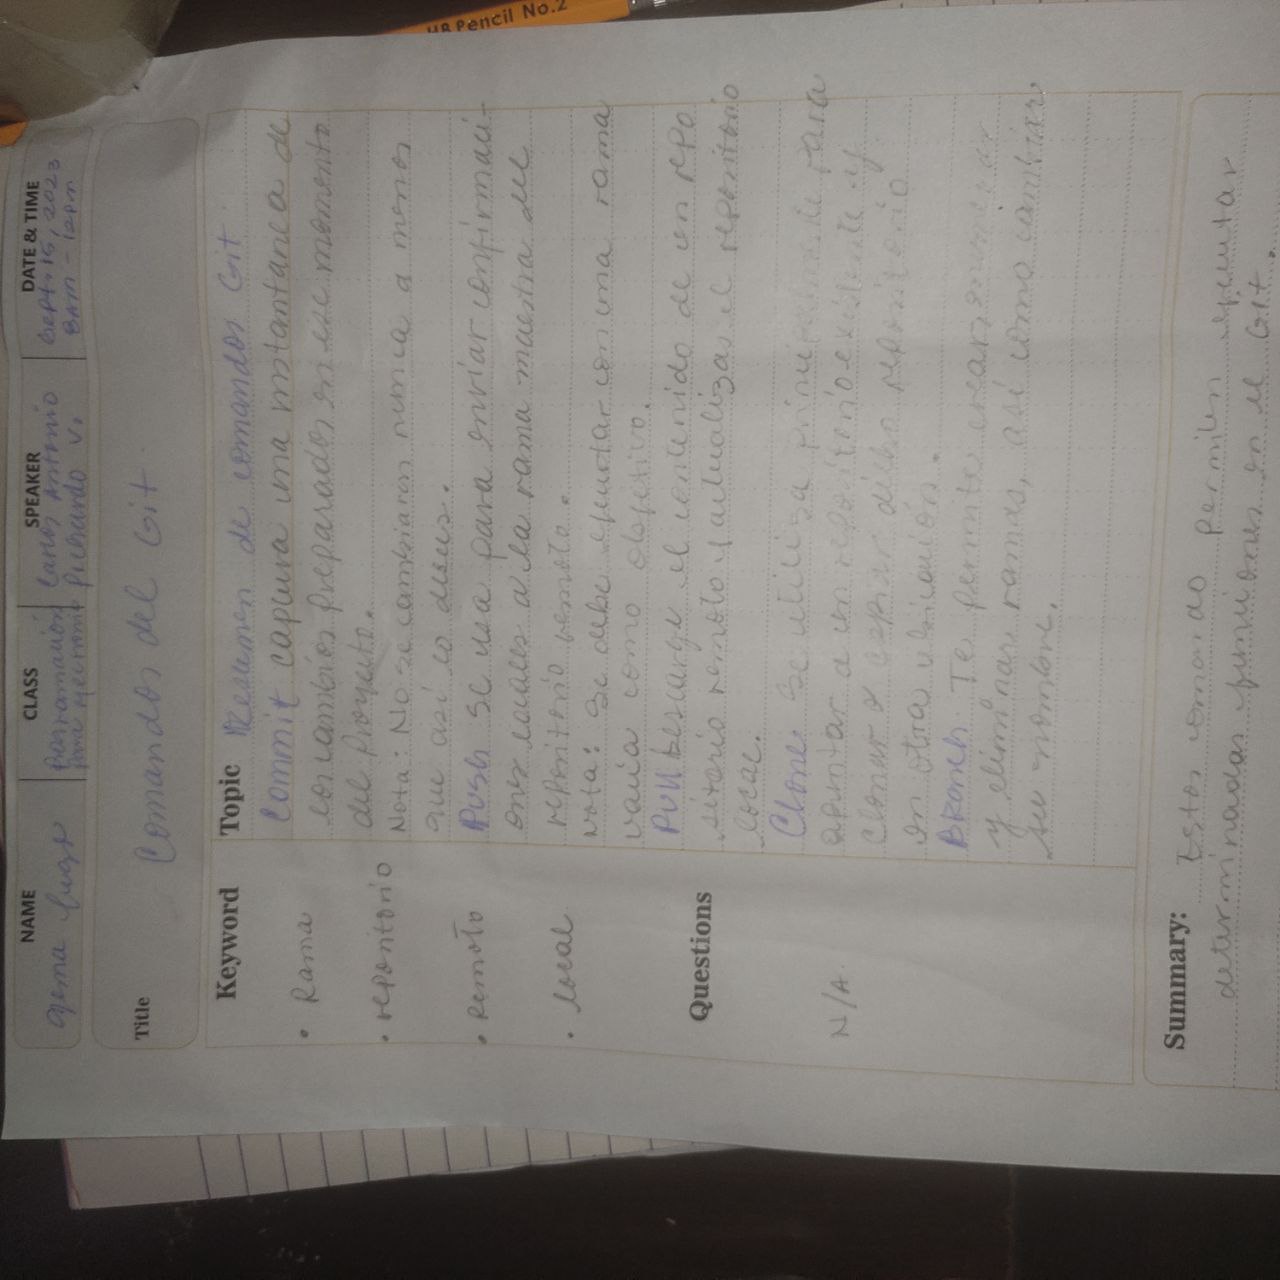 HB Pencil No.2
NAME
CLASS
SPEAKER
DATE & TIME
Gema
Programación
Carlos Antonio
Sept. 15, 2023
Pichardo V.
8AM - 12PM
Title
Comandos del Git.
Keyword
• Rama
• repositorio
• Remoto
• local
Questions
N/A.
Topic Resumen de comandos Git.
Commit captura una instantanea de
los cambios preparados en ese momento
del proyecto.
Nota: No se cambiaran nunca a menos
que así lo desees.
Push Se usa para enviar confirmaci-
ones locales a la rama maestra del
repositorio remoto.
nota: Se debe ejecutar con una rama
vacia como objetivo.
Pull Descarga el contenido de un repo
sitorio remoto y actualiza el repositorio
local.
Clone Se utiliza principalmente para
apuntar a un repositorio existente y
clonar o copiar dicho repositorio
en otra ubicación.
Branch Te permite crear, enumerar
y eliminar ramas, así como cambiar
su nombre.
Summary: Estos comando permiten ejecutar
determinadas funciones en el Git.